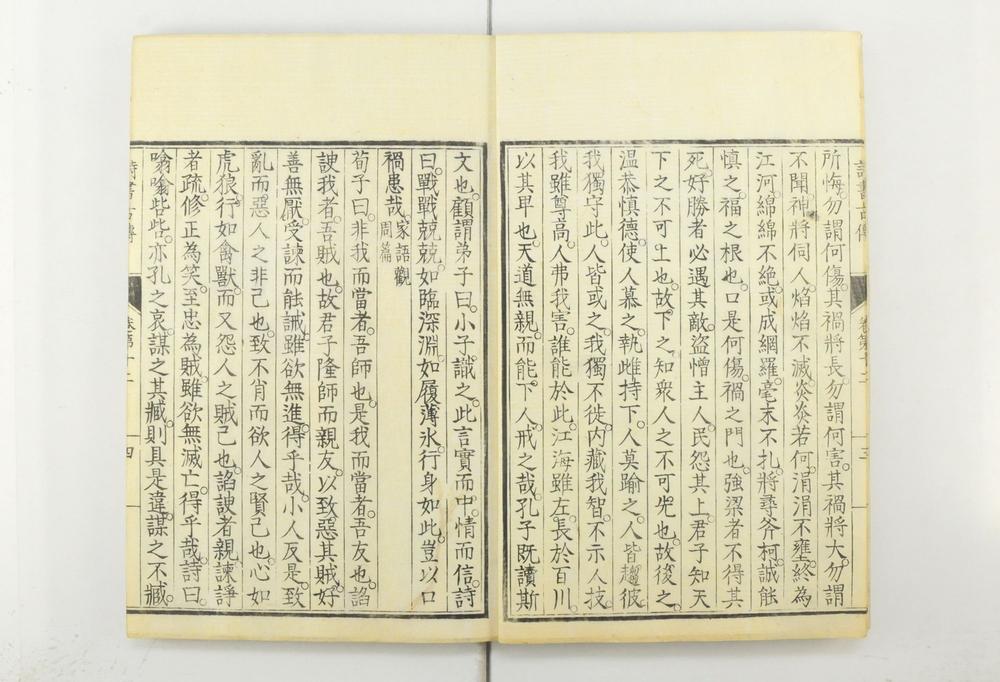 詩書古傳 卷第十二 三
所悔。勿謂何傷。其禍將長。勿謂何害。其禍將大。勿謂
不聞。神將伺人。焰焰不滅。炎炎若何。涓涓不壅。終為
江河。綿綿不絕。或成網羅。毫末不扎。將尋斧柯。誠能
慎之。福之根也。口是何傷。禍之門也。強梁者不得其
死。好勝者必遇其敵。盜憎主人。民怨其上。君子知天
下之不可上也。故下之。知衆人之不可先也。故後之。
温恭慎德。使人慕之。執雌持下。人莫踰之。人皆趨彼。
我獨守此。人皆或之。我獨不徙。内藏我智。不示人技。
我雖尊高。人弗我害。誰能於此。江海雖左。長於百川。
以其卑也。天道無親。而能下人。戒之哉。孔子既讀斯
文也。顧謂弟子曰。小子識之。此言實而中。情而信。詩
曰。戰戰兢兢。如臨深淵。如履薄冰。行身如此。豈以口
禍患哉。家語觀周篇
荀子曰。非我而當者。吾師也。是我而當者。吾友也。諂
諛我者。吾賊也。故君子隆師而親友。以致惡其賊。好
善無厭。受諫而能誡。雖欲無進。得乎哉。小人反是。致
亂而惡人之非己也。致不肖而欲人之賢己也。心如
虎狼。行如禽獸。而又怨人之賊己也。諂諛者親。諫諍
者疏。修正為笑。至忠為賊。雖欲無滅亡。得乎哉。詩曰。
噏噏呰呰。亦孔之哀。謀之其臧。則具是違。謀之不臧。
詩書古傳 卷第十二 四